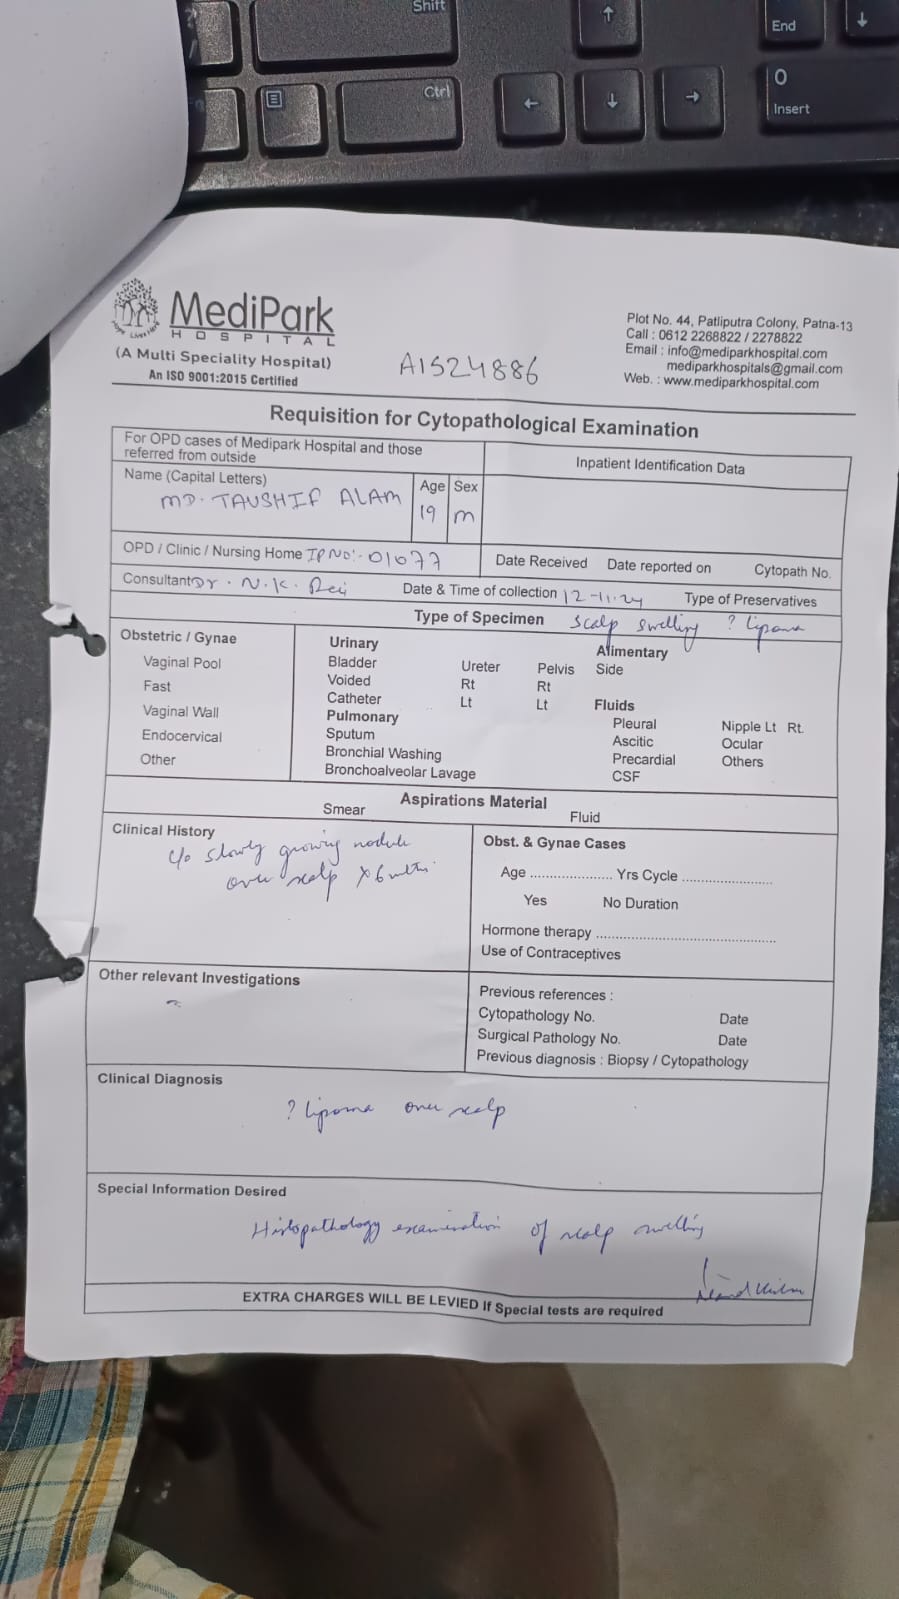 Shift
End
Ctrl
0
Insert
MediPark
HOSPITAL
(A Multi Speciality Hospital)
An ISO 9001:2015 Certified
A1524886
Plot No. 44, Patliputra Colony, Patna-13
Call : 0612 2268822 / 2278822
Email : info@mediparkhospital.com
mediparkhospitals@gmail.com
Web. : www.mediparkhospital.com
Requisition for Cytopathological Examination
For OPD cases of Medipark Hospital and those
referred from outside
Inpatient Identification Data
Name (Capital Letters) Age Sex
MD. TAUSHIF ALAM 19 M
OPD / Clinic / Nursing Home IP NO:- 01077 Date Received Date reported on Cytopath No.
Consultant Dr. N. K. Date & Time of collection 12-11-24 Type of Preservatives
Type of Specimen scalp swelling ? lipoma
Obstetric / Gynae
Vaginal Pool
Fast
Vaginal Wall
Endocervical
Other
Urinary
Bladder Ureter Pelvis
Voided Rt Rt
Catheter Lt Lt
Pulmonary
Sputum
Bronchial Washing
Bronchoalveolar Lavage
Alimentary
Side
Fluids
Pleural Nipple Lt Rt.
Ascitic Ocular
Precardial Others
CSF
Aspirations Material
Smear Fluid
Clinical History
c/o slowly growing nodule
over scalp x 6 mths
Obst. & Gynae Cases
Age .................... Yrs Cycle ......................
Yes No Duration
Hormone therapy ...........................................
Use of Contraceptives
Other relevant Investigations
Previous references :
Cytopathology No. Date
Surgical Pathology No. Date
Previous diagnosis : Biopsy / Cytopathology
Clinical Diagnosis
? lipoma over scalp
Special Information Desired
Histopathology examination of scalp swelling
EXTRA CHARGES WILL BE LEVIED If Special tests are required